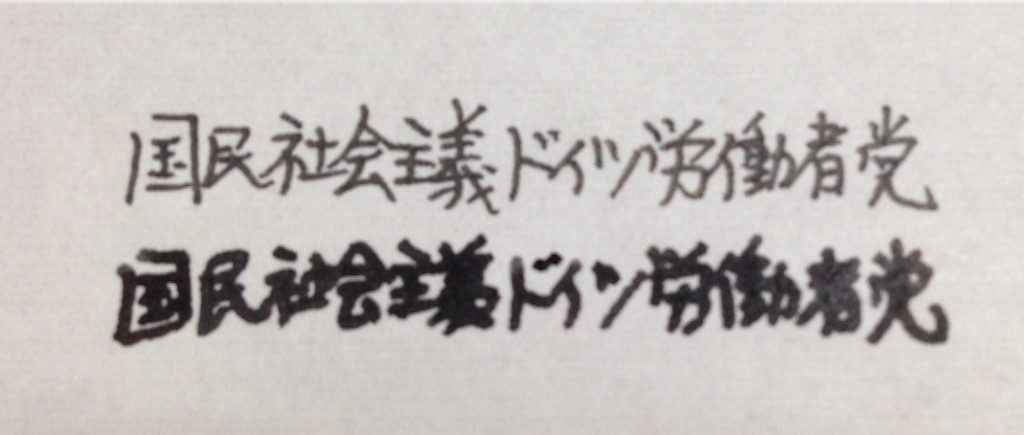 国民社会主義ドイツ労働者党
国民社会主義ドイツ労働者党